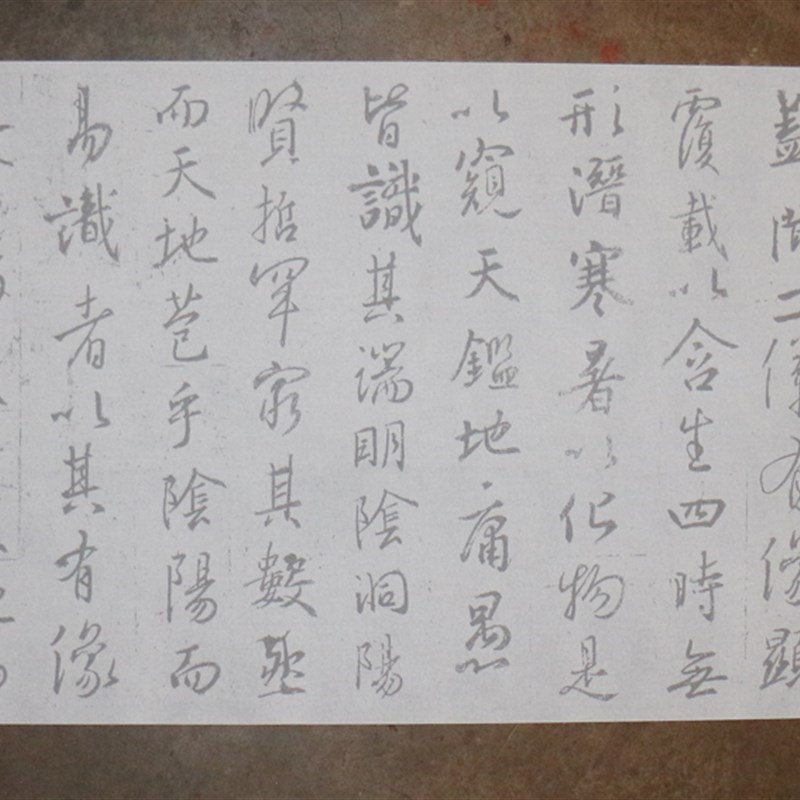 蓋聞二儀有像顯
覆載以含生四時無
形潛寒暑以化物是
以窺天鑑地庸愚
皆識其端明陰洞陽
賢哲罕窮其數然
而天地苞乎陰陽而
易識者以其有像